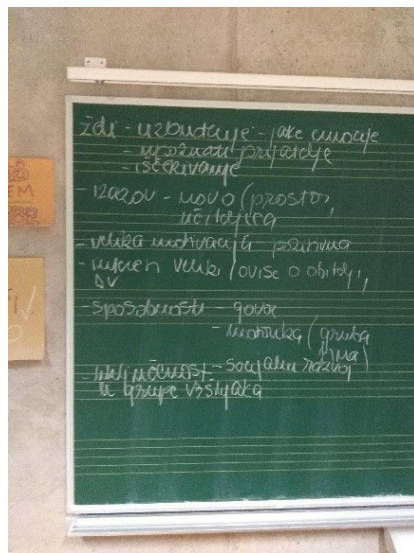 ždr - uzbuđenje - jake emocije
- upoznati prijatelje
- iščekivanje
- izazov - novo (prostor,
učiteljica
- velika motivacija pozitivna
- interes veliki (ovisi o obitelji,
DV
- sposobnosti - govor
- motorika (gruba
fina)
- uključenost - socijalni razvoj
u grupe vršnjaka
EM
BE